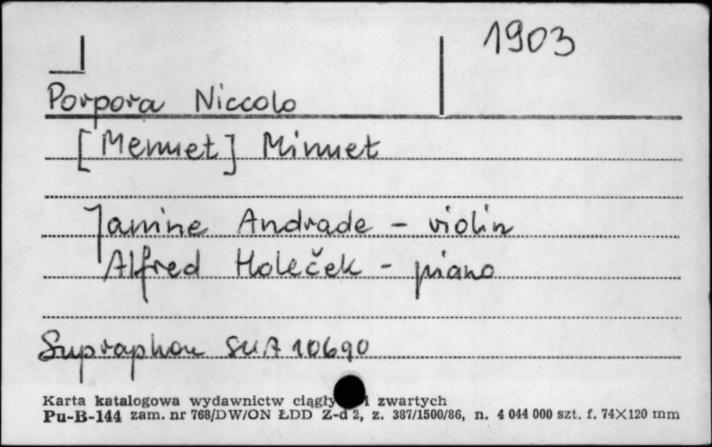 1903
Porpora Niccolo
[Menuet] Minuet
Janine Andrade - violin
Alfred Holeček - piano
Supraphon SUA 10690
Karta katalogowa wydawnictw i zwartych
Pu-B-144 zam. nr 768/DW/ON ŁDD Z-d 2, z. 387/1500/86, n. 4 044 000 szt. f. 74×120 mm